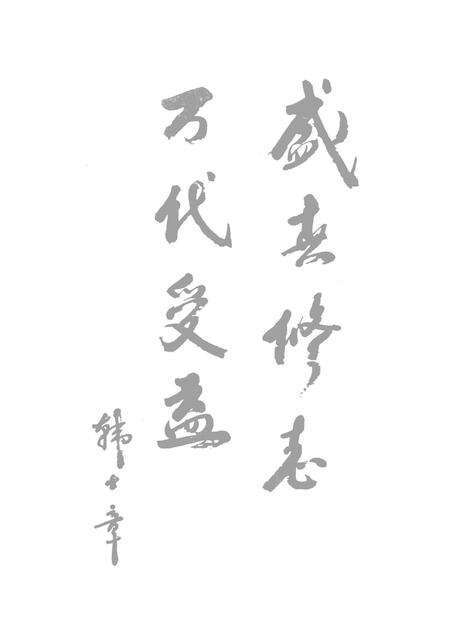 盛世修志
万代受益
韩士章